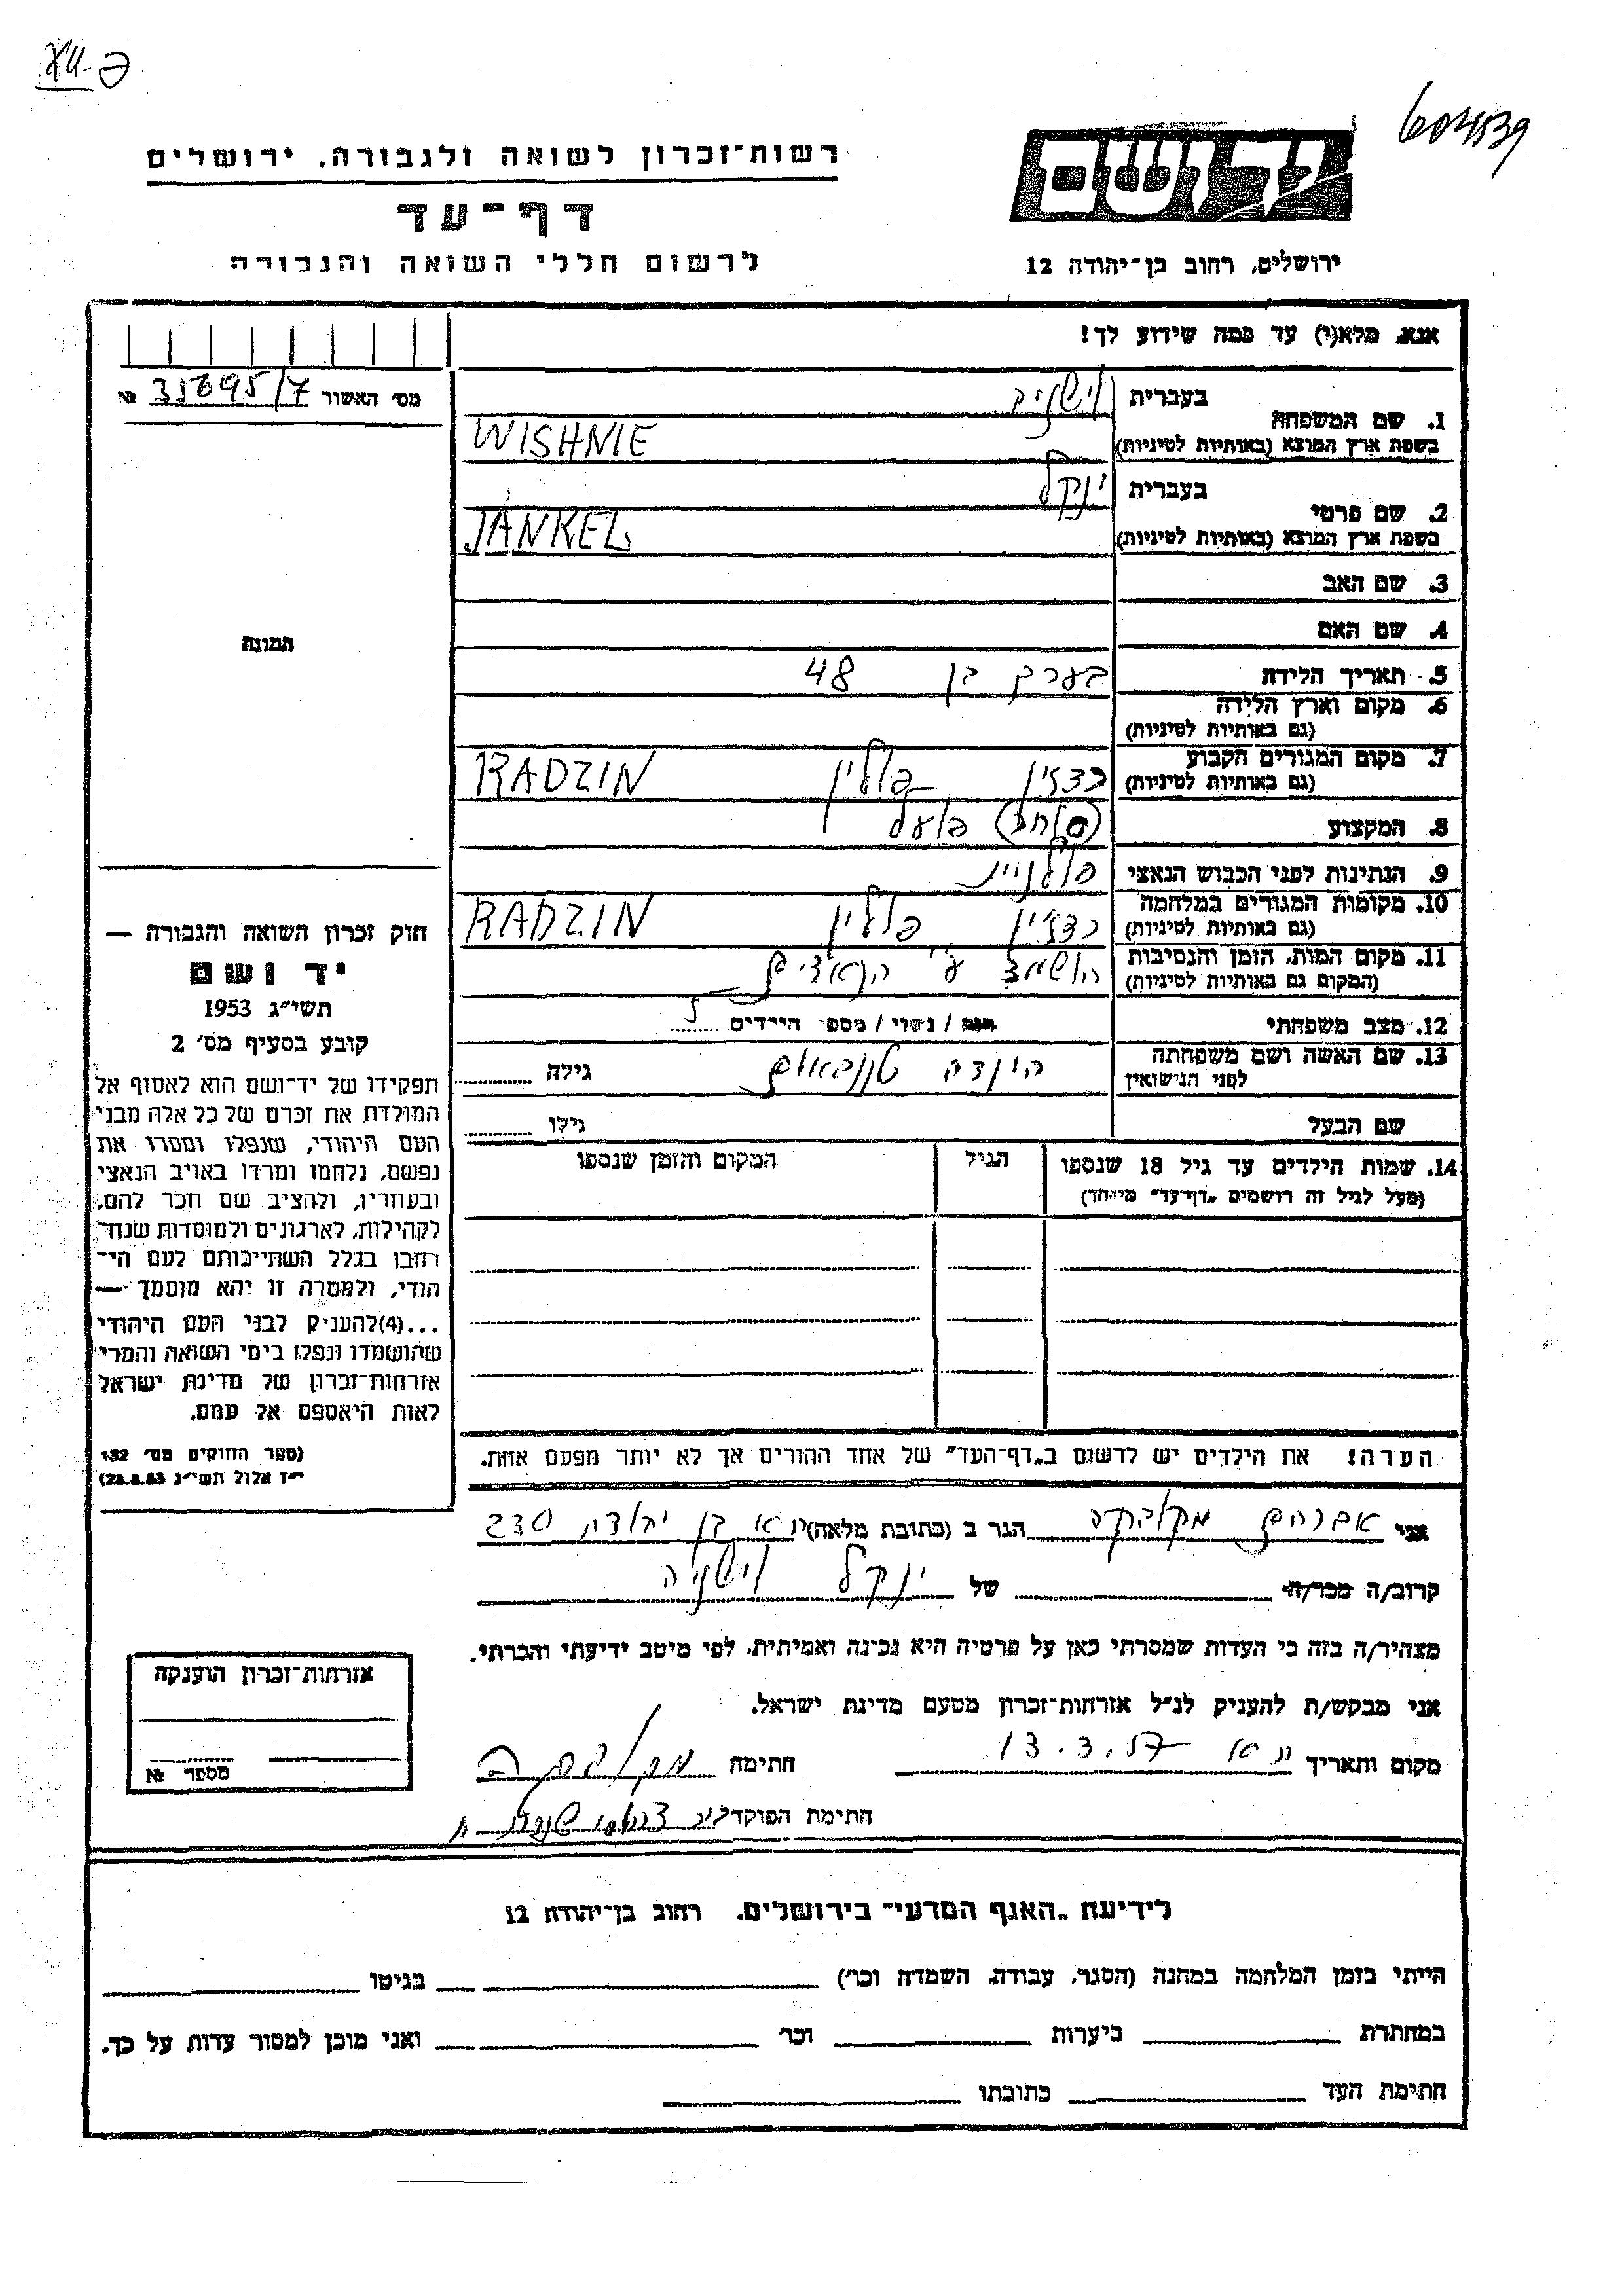 604539
רשות־זכרון לשואה ולגבורה, ירושלים
דף־עד
לרשום חללי השואה והגבורה
יד ושם
ירושלים, רחוב בן־יהודה 12
אנא, מלא(י) עד כמה שידוע לך!
מס׳ האשור № 35695/7
תמונה
1. שם המשפחה
בעברית וישניה
בשפת ארץ המוצא (באותיות לטיניות) WISHNIE
2. שם פרטי
בעברית ינקל
בשפת ארץ המוצא (באותיות לטיניות) JANKEL
3. שם האב
4. שם האם
5. תאריך הלידה בערך בן 48
6. מקום וארץ הלידה
(גם באותיות לטיניות)
7. מקום המגורים הקבוע
(גם באותיות לטיניות) רדזין פולין RADZIN
8. המקצוע (סוחר) פועל
9. הנתינות לפני הכבוש הנאצי פולנית
10. מקומות המגורים במלחמה
(גם באותיות לטיניות) רדזין פולין RADZIN
11. מקום המות, הזמן והנסיבות
(המקום גם באותיות לטיניות) הושמד ע״י הנאצים
12. מצב משפחתי רווק / נשוי / מספר הילדים
13. שם האשה ושם משפחתה
לפני הנישואין הינדה טננבאום גילה
שם הבעל גילו
14. שמות הילדים עד גיל 18 שנספו
(מעל לגיל זה רושמים „דף־עד״ מיוחד)
הגיל
המקום והזמן שנספו
הערה! את הילדים יש לרשום ב„דף־העד״ של אחד ההורים אך לא יותר מפעם אחת.
חוק זכרון השואה והגבורה —
יד ושם
תשי״ג 1953
קובע בסעיף מס׳ 2
תפקידו של יד־ושם הוא לאסוף אל
המולדת את זכרם של כל אלה מבני
העם היהודי, שנפלו ומסרו את
נפשם, נלחמו ומרדו באויב הנאצי
ובעוזריו, ולהציב שם וזכר להם,
לקהילות, לארגונים ולמוסדות שנח־
רבו בגלל השתייכותם לעם הי־
הודי, ולמטרה זו יהא מוסמך —
...(4) להעניק לבני העם היהודי
שהושמדו ונפלו בימי השואה והמרי
אזרחות־זכרון של מדינת ישראל
לאות היאספם אל עמם.
(ספר החוקים מס׳ 132
י״ז אלול תשי״ג 28.8.53)
אני אברהם הגר ב (כתובת מלאה) ת״א בן יהודה 230
קרוב/ה מכר/ה של ינקל וישניה
מצהיר/ה בזה כי העדות שמסרתי כאן על פרטיה היא נכונה ואמיתית, לפי מיטב ידיעתי והכרתי.
אני מבקש/ת להעניק לנ״ל אזרחות־זכרון מטעם מדינת ישראל.
מקום ותאריך ת״א 13.3.57 חתימה
חתימת הפוקד
אזרחות־זכרון הוענקה
מספר №
לידיעת „האגף המדעי״ בירושלים, רחוב בן־יהודה 12
הייתי בזמן המלחמה במחנה (הסגר, עבודה, השמדה וכו׳) בגיטו
במחתרת ביערות וכו׳ ואני מוכן למסור עדות על כך.
חתימת העד כתובתו